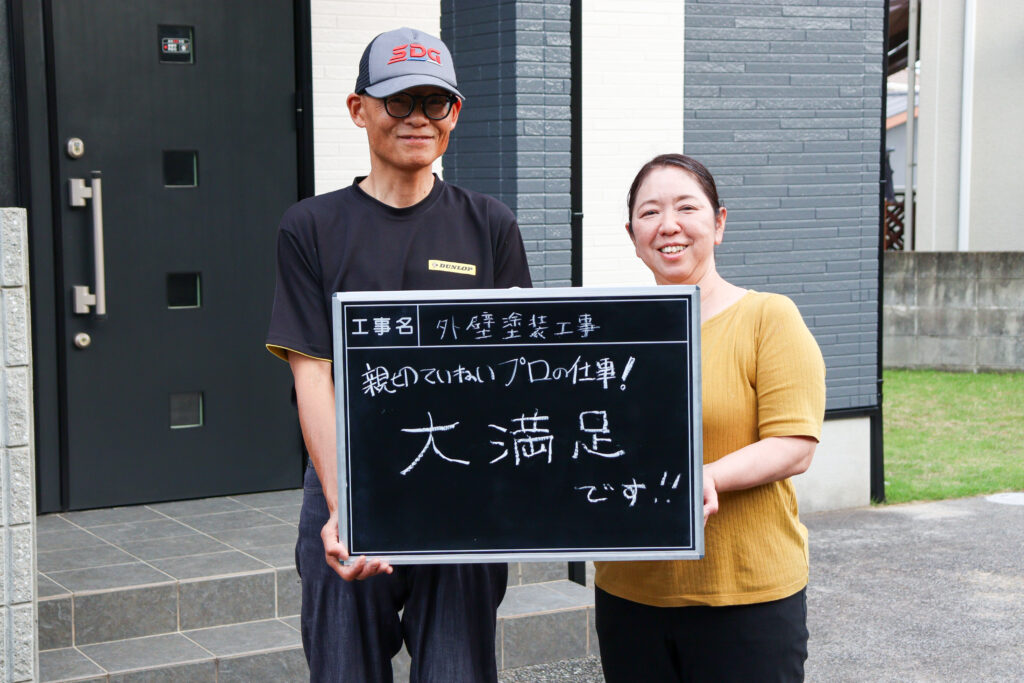 SDG
DUNLOP
工事名 外壁塗装工事
親切ていねいプロの仕事!
大満足
です!!